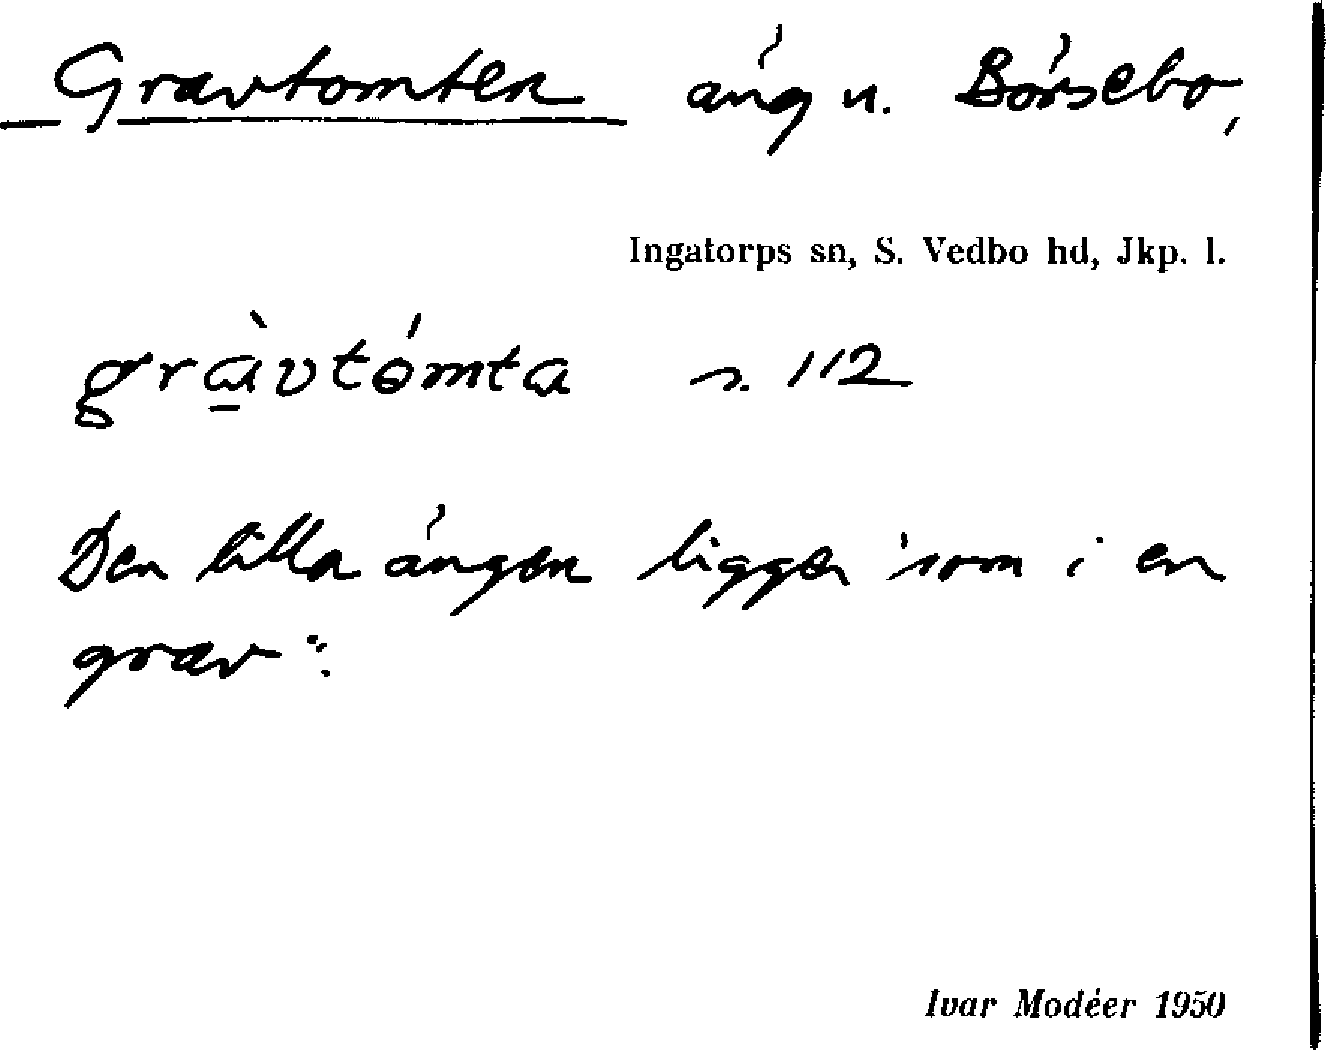 Gravtomten äng u. Börsebo,
Ingatorps sn, S. Vedbo hd, Jkp. l.
grà̱vtómta s. 112
Den lilla ängen ligger 'som i en
grav".
Ivar Modéer 1950